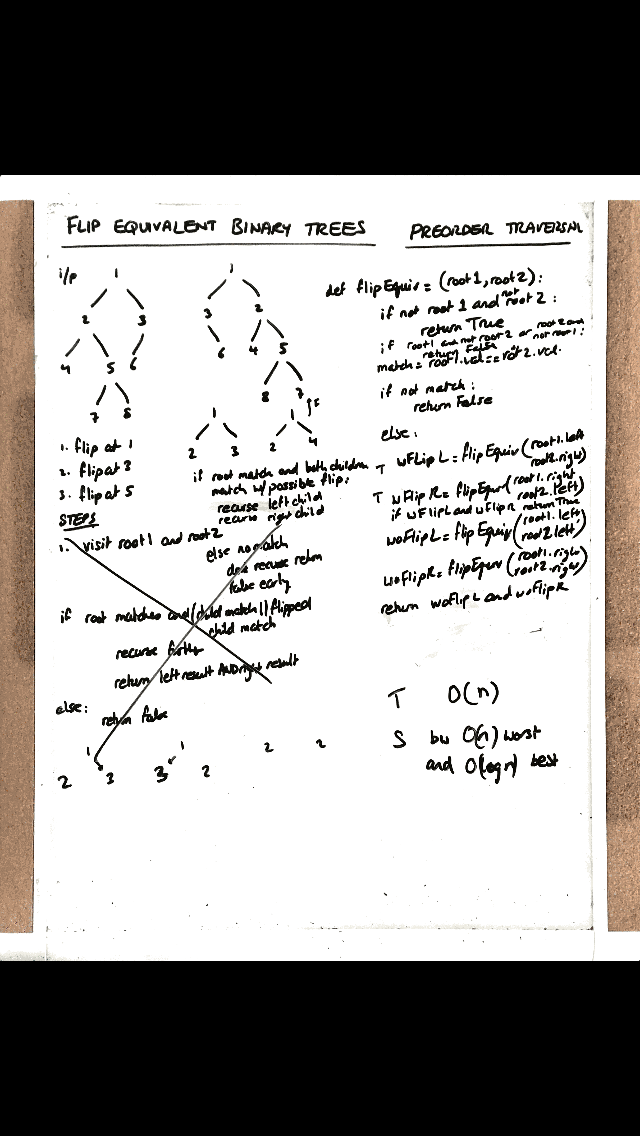 FLIP EQUIVALENT BINARY TREES
PREORDER TRAVERSAL
i/p
1
2 3
4 5 6
7 8
1
3 2
6 4 5
8 7
1
2 3
1
2 4
1. flip at 1
2. flip at 3
3. flip at 5
if root match and both children
match w/ possible flip:
recurse left child
recurse right child
else no match
dont recurse return
false early
STEPS
1. visit root1 and root2
if root matches and (child match || flipped
child match
recurse further
return left result AND right result
else:
return false
1
2 3
1
3 2
2 2
def flipEquiv = (root1, root2):
if not root 1 and not root 2 :
return True
if root1 and not root 2 or root 2 and
not root1 :
return False
match = root1.val == root2.val
if not match :
return False
else:
T wFlip L = flipEquiv (root1.left
root2.right)
T wFlip R = flipEquiv (root1.right
root2.left)
if wFlipL and wFlipR return True
woFlipL = flipEquiv (root1.left,
root2.left)
woFlipR = flipEquiv (root1.right,
root2.right)
return woFlip L and woFlip R
T O(n)
S bw O(n) worst
and O(logn) best